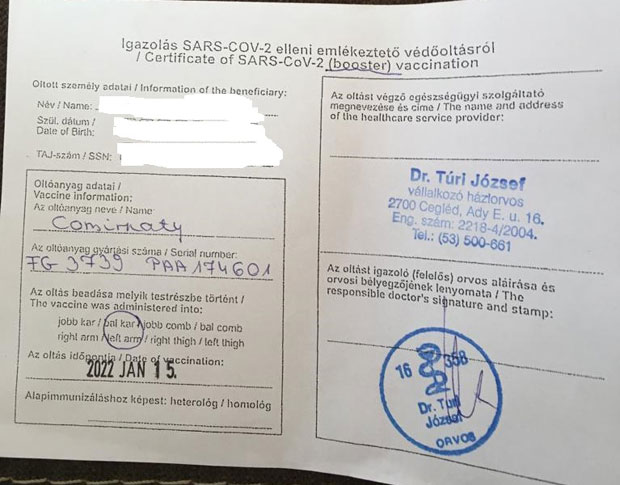 Igazolás SARS-COV-2 elleni emlékeztető védőoltásról
/ Certificate of SARS-CoV-2 (booster) vaccination
Oltott személy adatai / Information of the beneficiary:
Név / Name:
Szül. dátum /
Date of Birth:
TAJ-szám / SSN:
Oltóanyag adatai /
Vaccine information:
Az oltóanyag neve / Name
Comirnaty
Az oltóanyag gyártási száma / Serial number:
FG 3739 PAA174601
Az oltás beadása melyik testrészbe történt /
The vaccine was administered into:
jobb kar / bal kar / jobb comb / bal comb
right arm / left arm / right thigh / left thigh
Az oltás időpontja / Date of vaccination:
2022 JAN 15.
Alapimmunizáláshoz képest: heterológ / homológ
Az oltást végző egészségügyi szolgáltató
megnevezése és címe / The name and address
of the healthcare service provider:
Dr. Túri József
vállalkozó háziorvos
2700 Cegléd, Ady E. u. 16.
Eng. szám: 2218-4/2004.
Tel.: (53) 500-661
Az oltást igazoló (felelős) orvos aláírása és
orvosi bélyegzőjének lenyomata / The
responsible doctor's signature and stamp:
16 358
Dr. Túri
József
ORVOS